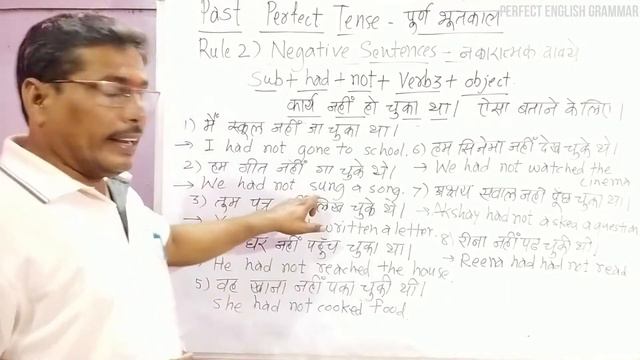 PERFECT ENGLISH GRAMMAR
Past Perfect Tense - पूर्ण भूतकाल
Rule 2) Negative Sentences - नकारात्मक वाक्ये
Sub + had + not + Verb3 + object.
कार्य नहीं हो चुका था। ऐसा बताने के लिए।
1) मैं स्कूल नहीं जा चुका था।
→ I had not gone to school.
2) हम गीत नहीं गा चुके थे।
→ We had not sung a song.
3) तुम पत्र लिख चुके थे।
written a letter.
घर नहीं पहुँच चुका था।
He had not reached the house.
5) वह खाना नहीं पका चुकी थी।
She had not cooked food
6) हम सिनेमा नहीं देख चुके थे।
→ We had not watched the cinema
7) अक्षय सवाल नहीं पूछ चुका था।
→ Akshay had not asked a question
8) रीना नहीं पढ़ चुकी थी।
→ Reena had had not read